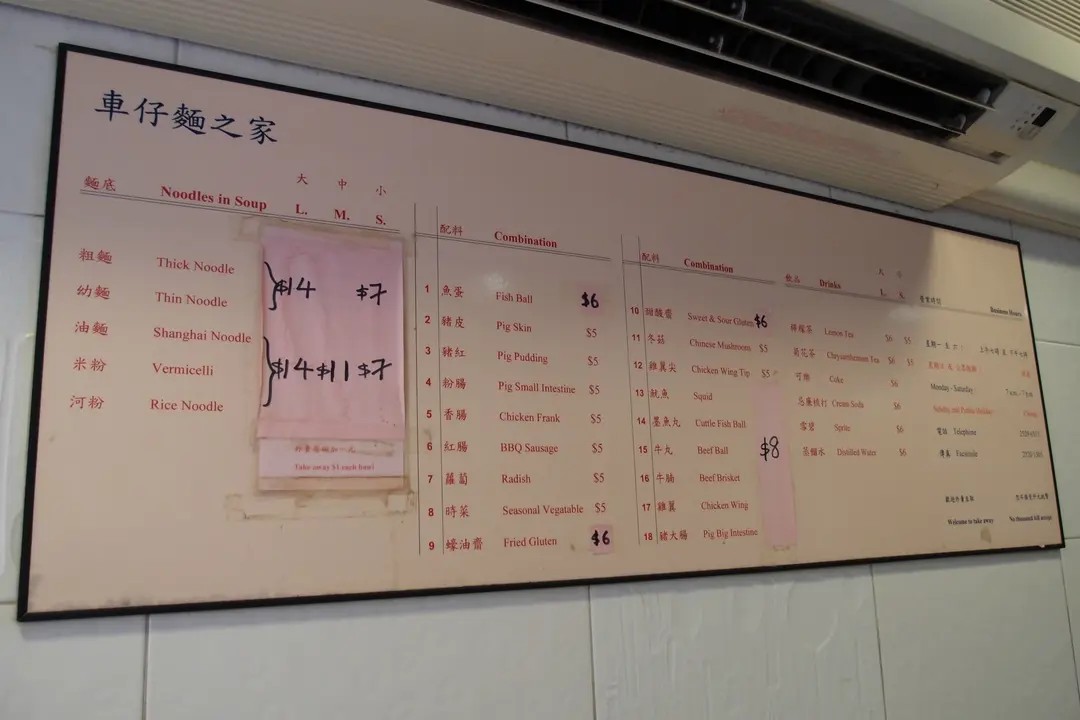 車仔麵之家
麵底 Noodles in Soup 大 L. 中 M. 小 S.
粗麵 Thick Noodle
幼麵 Thin Noodle
$14 $7
油麵 Shanghai Noodle
米粉 Vermicelli
河粉 Rice Noodle
$14 $11 $7
外賣每碗加一元
Take away $1 each bowl
配料 Combination
1 魚蛋 Fish Ball $6
2 豬皮 Pig Skin $5
3 豬紅 Pig Pudding $5
4 粉腸 Pig Small Intestine $5
5 香腸 Chicken Frank $5
6 紅腸 BBQ Sausage $5
7 蘿蔔 Radish $5
8 時菜 Seasonal Vegatable $5
9 蠔油齋 Fried Gluten $6
配料 Combination
10 甜酸齋 Sweet & Sour Gluten $6
11 冬菇 Chinese Mushroom $5
12 雞翼尖 Chicken Wing Tip $5
13 魷魚 Squid
14 墨魚丸 Cuttle Fish Ball
15 牛丸 Beef Ball
16 牛腩 Beef Brisket
17 雞翼 Chicken Wing
18 豬大腸 Pig Big Intestine
$8
飲品 Drinks 大 L. 小 S.
檸檬茶 Lemon Tea $6 $5
菊花茶 Chrysanthemum Tea $6 $5
可樂 Coke $6
忌廉梳打 Cream Soda $6
雪碧 Sprite $6
蒸餾水 Distilled Water $6
營業時間 Business Hours
Monday - Saturday
Sunday and Public Holiday
電話 Telephone
傳真 Facsimile
歡迎外賣自取
Welcome to take away
No thousand bill accept